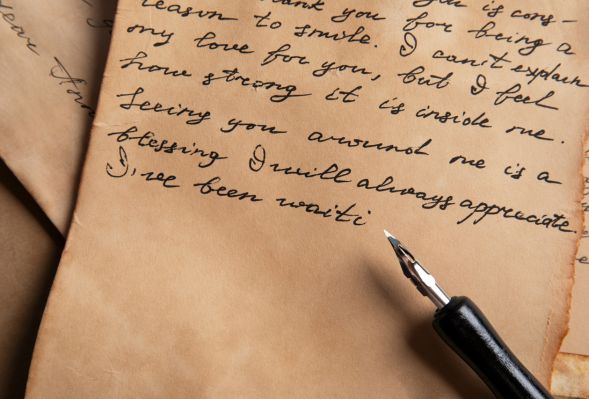 ank you is cons-
reason you for being a
to smile. I can't explain
my love for you, but I feel
how strong it is inside me.
Seeing you around me is a
blessing I will always appreciate.
I've been waiti
dear